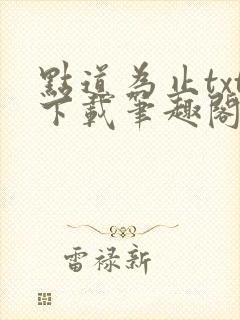 點道为止txt
下载筆趣閣
雷禄新